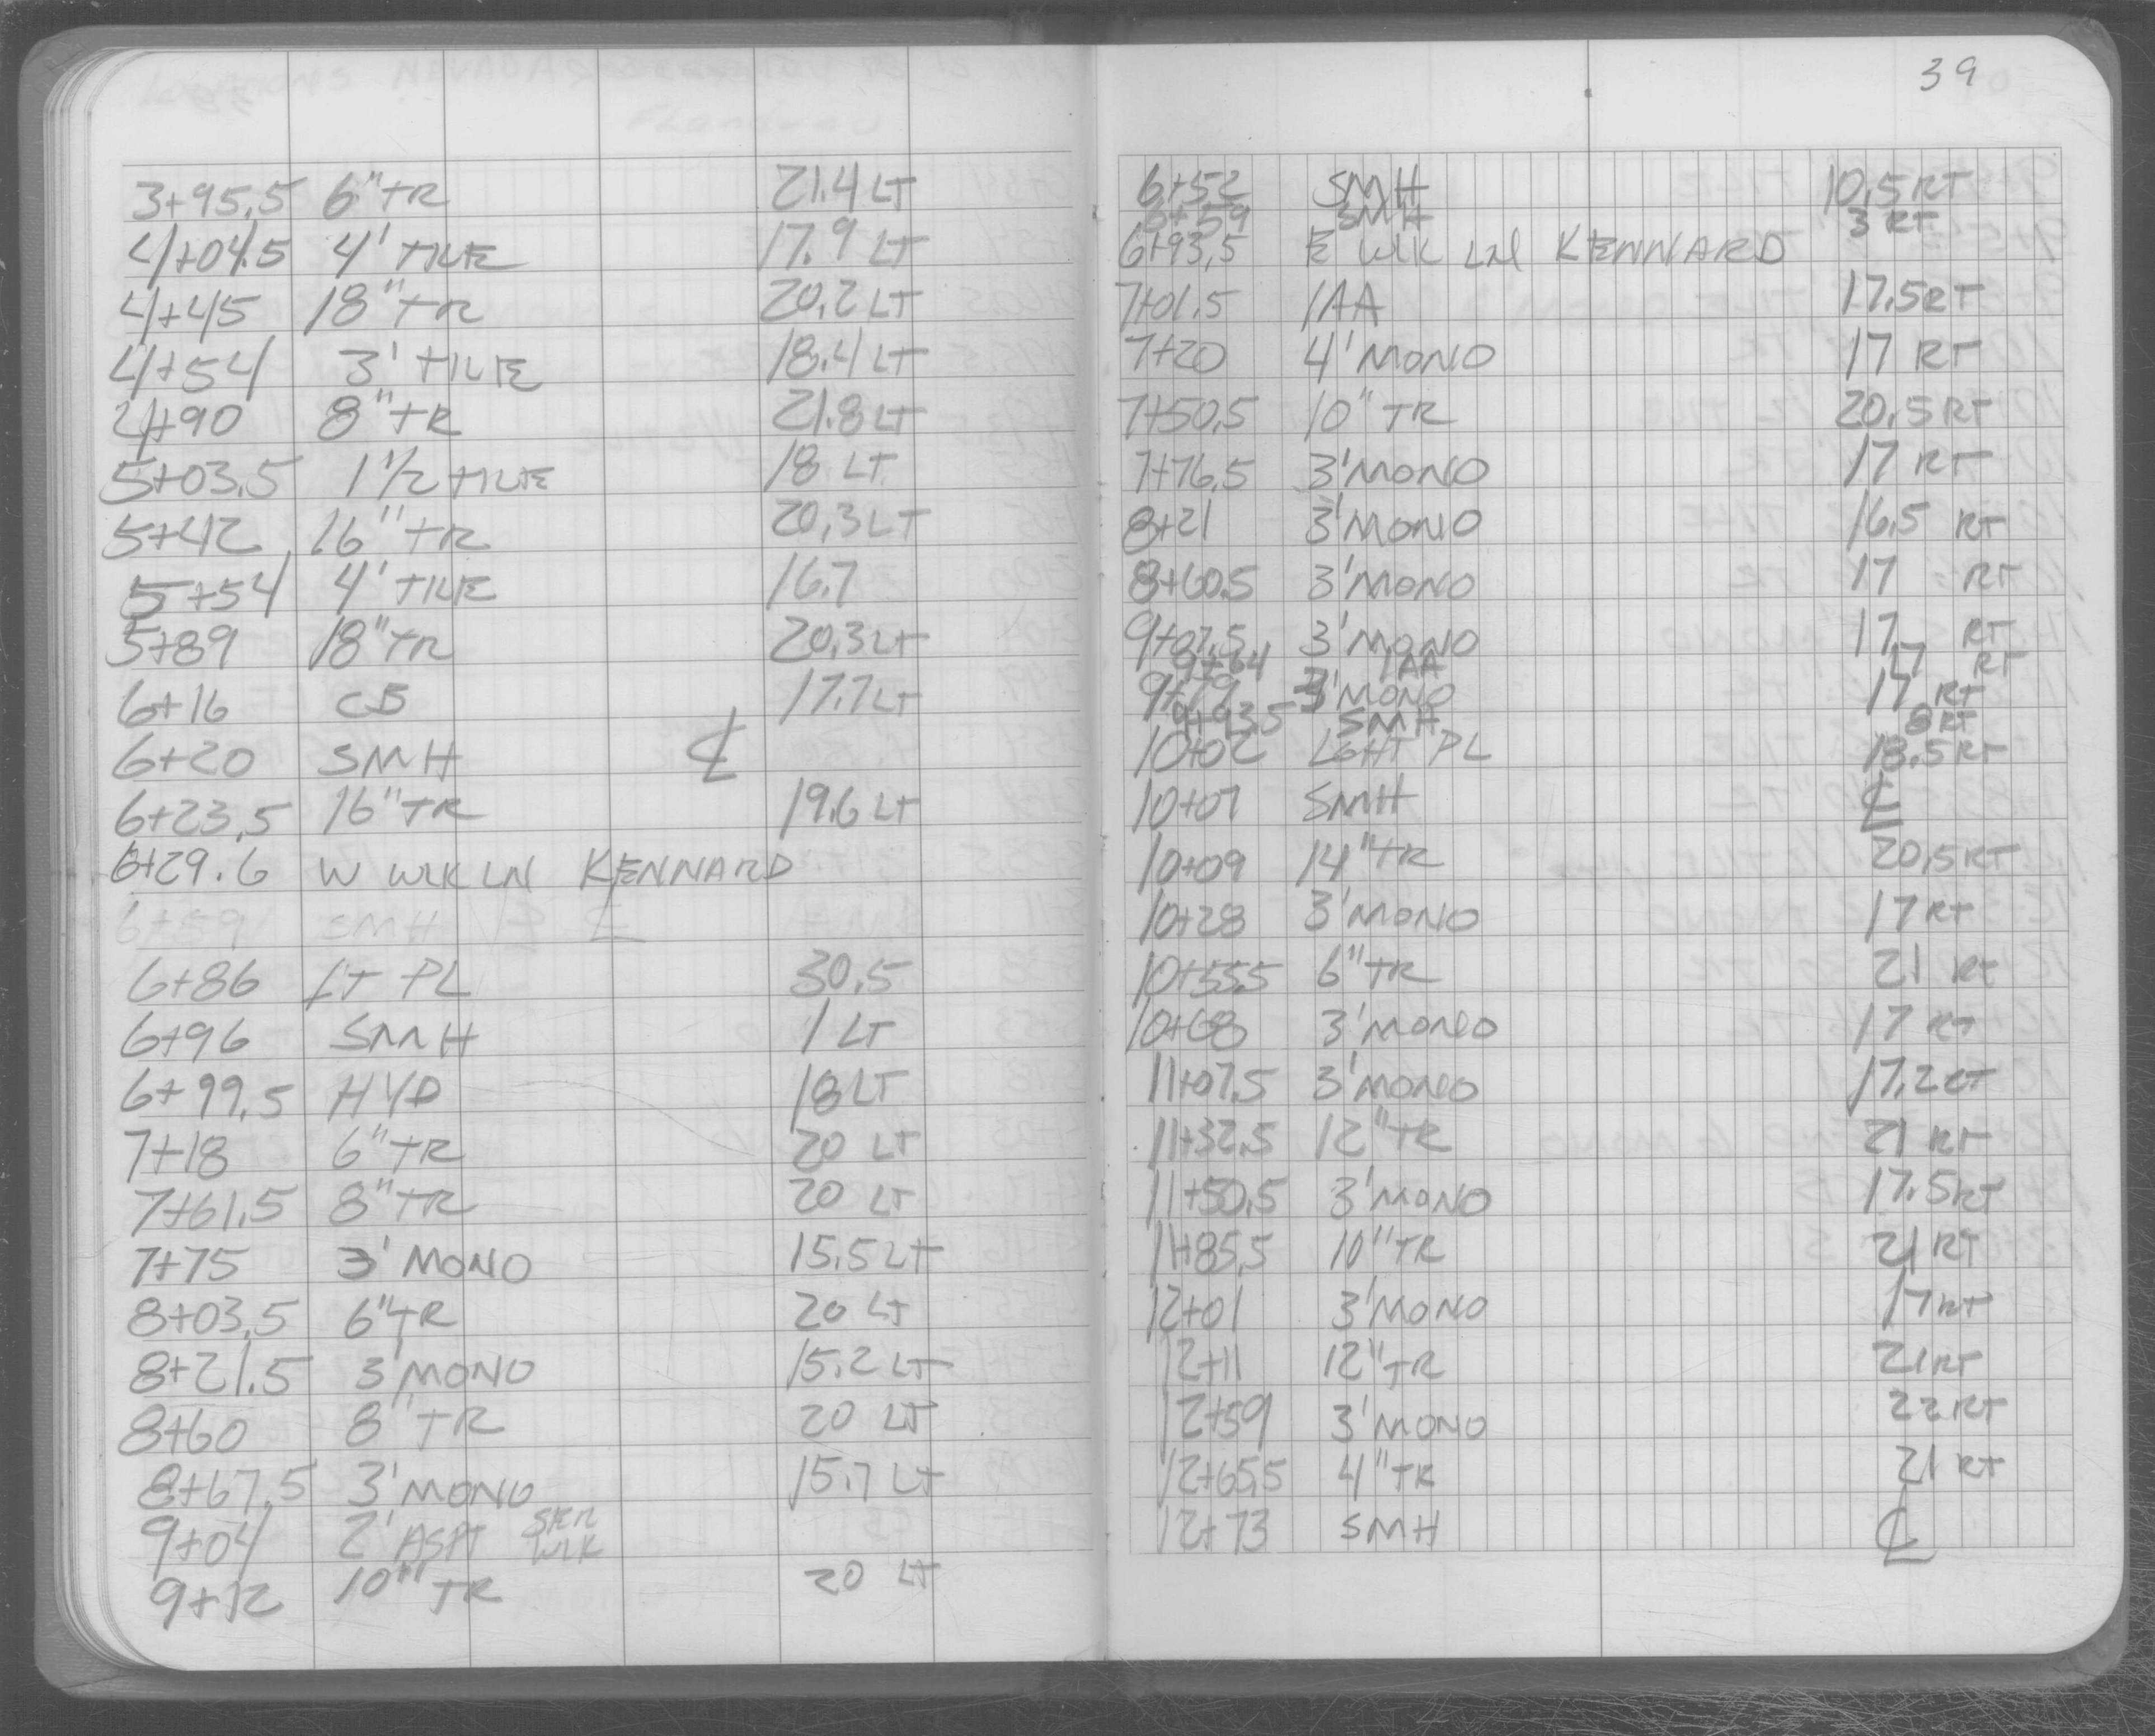 3+95.5 6" TR 21.4 LT
4+04.5 4' TILE 17.9 LT
4+45 18" TR 20.2 LT
4+54 3' TILE 18.4 LT
4+90 8" TR 21.8 LT
5+03.5 1 1/2 TILE 18 LT
5+42 16" TR 20.3 LT
5+54 4' TILE 16.7
5+89 18" TR 20.3 LT
6+16 CB 17.7 LT
6+20 SMH ℄
6+23.5 16" TR 19.6 LT
6+29.6 W WLK LN KENNARD
6+59 SMH
6+86 LT PL 30.5
6+96 SMH 1 LT
6+99.5 HYD 18 LT
7+18 6" TR 20 LT
7+61.5 8" TR 20 LT
7+75 3' MONO 15.5 LT
8+03.5 6" TR 20 LT
8+21.5 3' MONO 15.2 LT
8+60 8" TR 20 LT
8+67.5 3' MONO 15.7 LT
9+04 2' ASPT SER WLK
9+12 10" TR 20 LT
39
6+52 SMH 10.5 RT
6+59 SMH 3 RT
6+93.5 E WLK LN KENNARD
7+01.5 1AA 17.5 RT
7+20 4' MONO 17 RT
7+50.5 10" TR 20.5 RT
7+76.5 3' MONO 17 RT
8+21 3' MONO 16.5 RT
8+60.5 3' MONO 17 RT
9+07.5 3' MONO 17 RT
9+64 1AA 17 RT
9+79 3' MONO 17 RT
9+93.5 SMH 8 RT
10+02 LGHT PL 18.5 RT
10+07 SMH ℄
10+09 14" TR 20.5 RT
10+28 3' MONO 17 RT
10+55.5 6" TR 21 RT
10+68 3' MONO 17 RT
11+07.5 3' MONO 17.2 RT
11+32.5 12" TR 21 RT
11+50.5 3' MONO 17.5 RT
11+85.5 10" TR 21 RT
12+01 3' MONO 17 RT
12+11 12" TR 21 RT
12+59 3' MONO 22 RT
12+65.5 4" TR 21 RT
12+73 SMH ℄